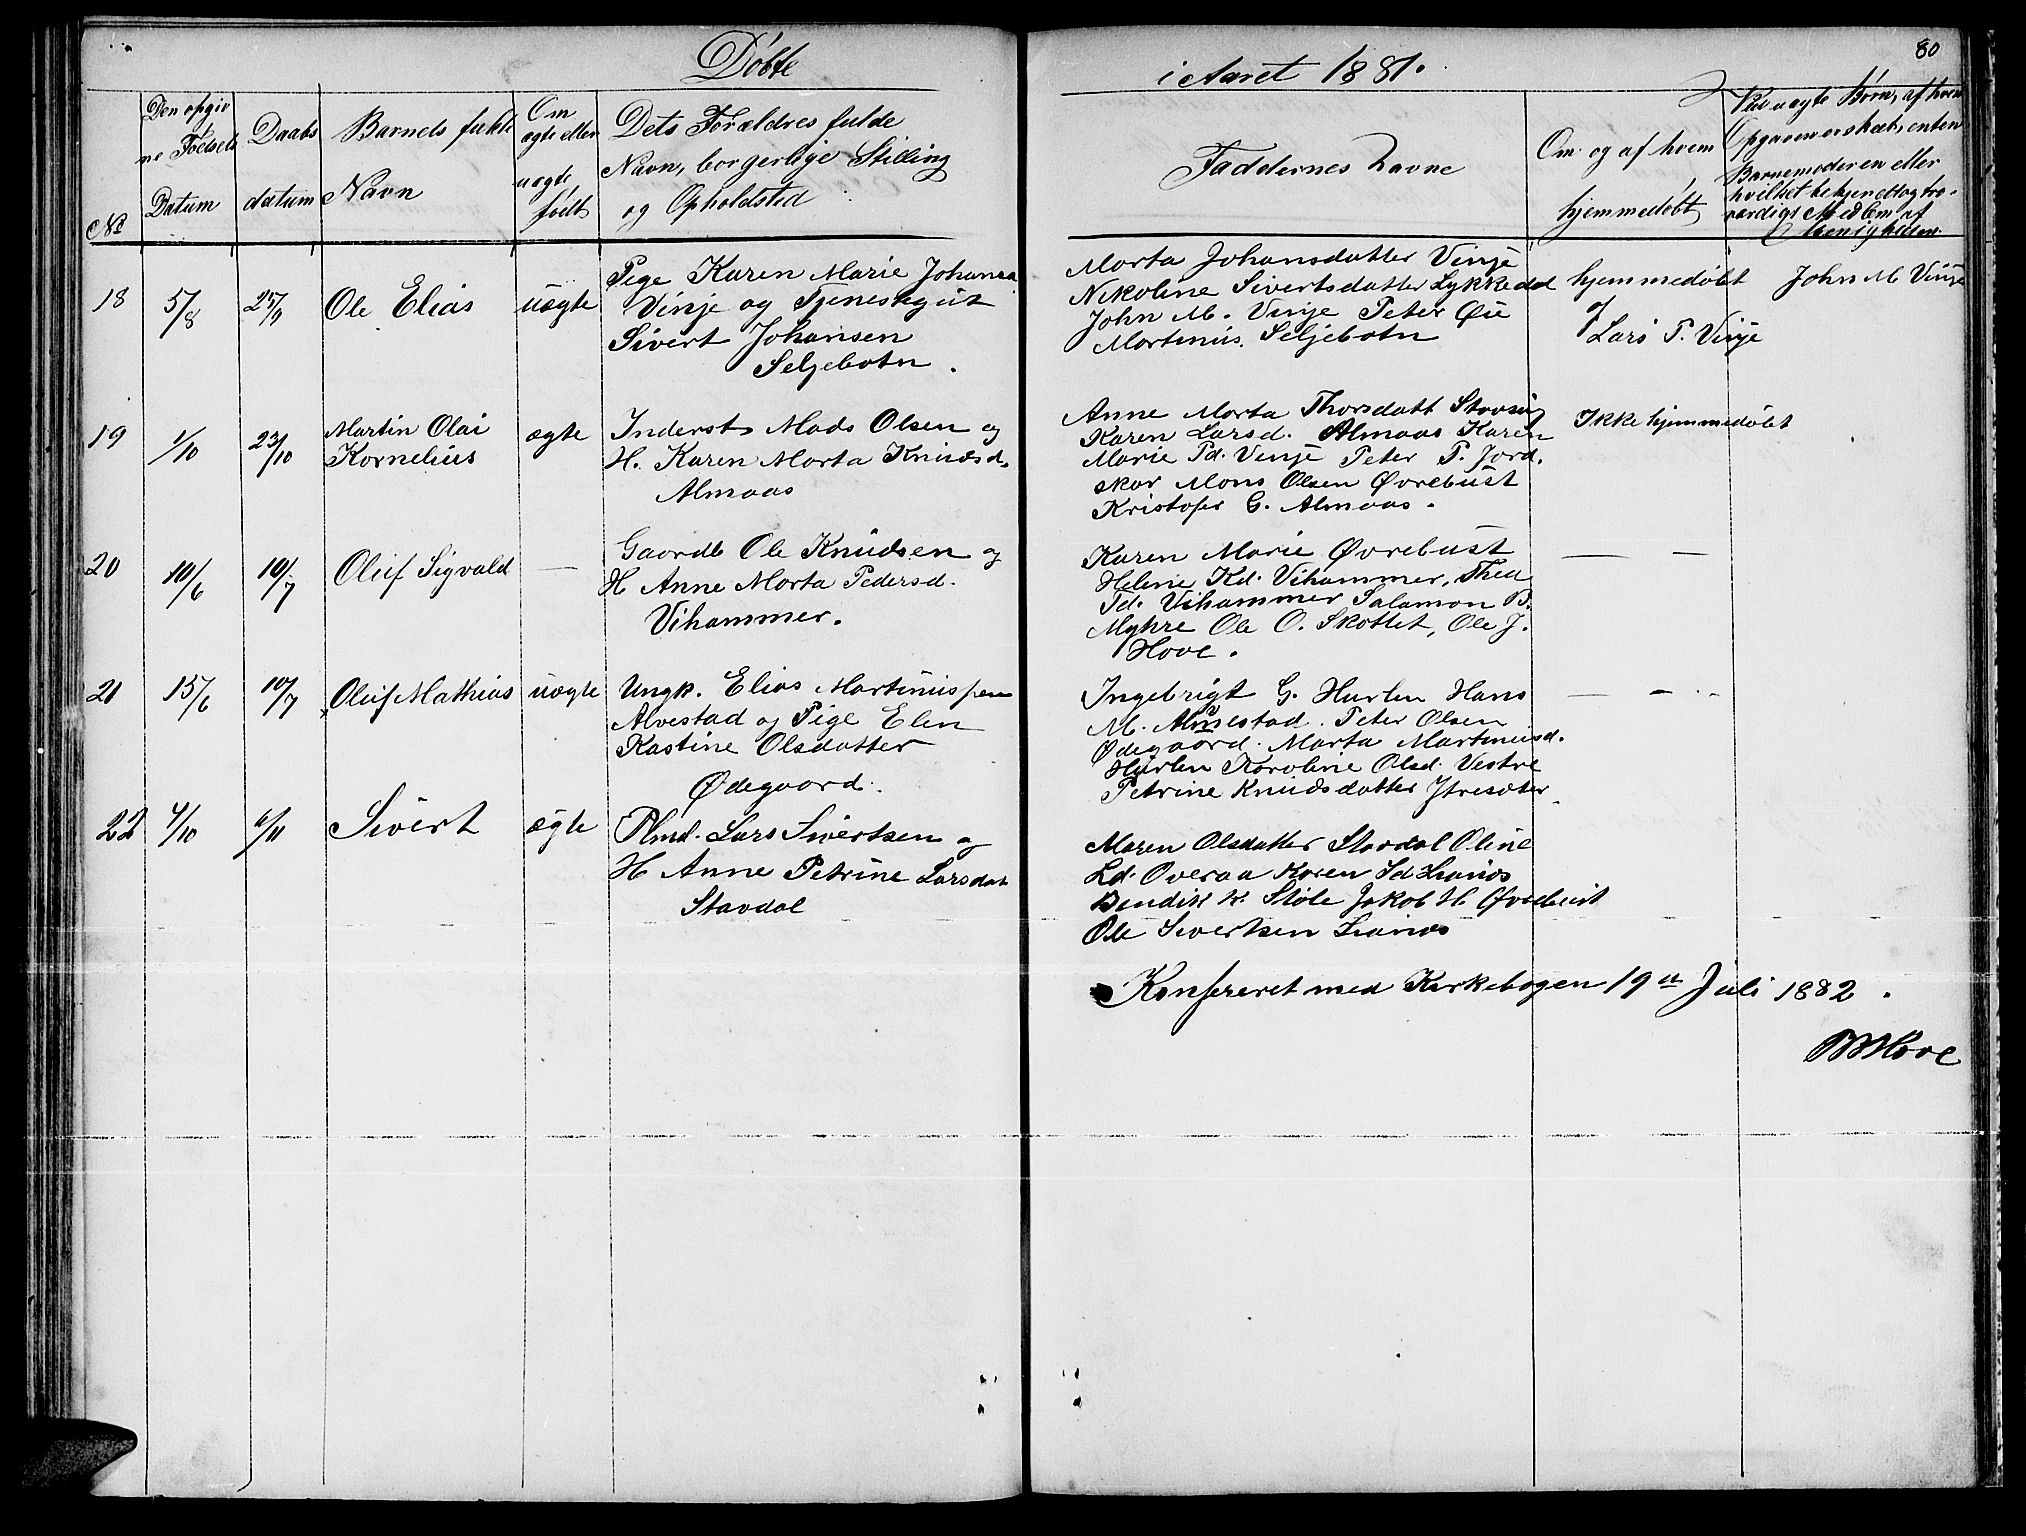 Döbte
i Aaret 1881.
80
No
Den opgiv
ne Födsels
Datum
Daabs
datum
Barnets fulde
Navn
Om
ægte eller
uægte
födt
Dets Forældres fulde
Navn, borgerlige Stilling
og Opholdsted
Faddernes Navne
Om og af hvem
hjemmedöbt
Ved uægte Börn, af hvem
Opgaven er skeet, enten
Barnemoderen eller
hvilket bekjendt og tro-
værdigt Medlem af
Menigheden.
18 5/8 25/9 Ole Elias uægte
Pige Karen Marie Johanna
Vinje og Tjenestegut
Sivert Johansen
Seljebotn.
Marta Johansdatter Vinje
Nikoline Sivertsdatter
John M. Vinje Peter Öie
Martinus Seljebotn
hjemmedöbt
af
Lars P. Vinje
John M Vinje
19 1/10 23/10 Martin Olai
Kornelius
ægte
Inderst Mads Olsen og
H. Karen Marta Knudsd.
Almaas
Anne Marta Thorsdatt
Karen Larsd. Almaas Karen
Marie Pd. Vinje Peter P. Jord.
skar Mons Olsen Øvrebust
Kristofer G. Almaas.
Ikke hjemmedöbt
20 10/6 10/7 Oluf Sigvald —
Gaardb Ole Knudsen og
H Anne Marta Pedersd.
Vihammer.
Karen Marie Øvrebust
Helene Kd. Vihammer, Thea
Pd. Vihammer Salamon B.
Myhre Ole O. Skottet, Ole J.
Hove.
— —
21 15/6 10/7 Oluf Mathias uægte
Ungk. Elias Martinussen
Alvestad og Pige Elen
Kastine Olsdatter
Ødegaard.
Ingebrigt G. Hurlen Hans
M. Peter Olsen
Ødegaard. Marta Martinusd.
Hurlen Karoline Olsd. Vestre
Petrine Knudsdatter Ytresæter
— - --
22 4/10 6/11 Sivert ægte
Plmd. Lars Sivertsen og
H Anne Petrine Larsdat
Stavdal
Maren Olsdatter Stavdal Oline
Ld. Overaa Karen Sd. Lianæs
Bendik K. Støle Jakob H. Øvrebust
Ole Sivertsen Lianæs
Konfereret med Kirkebogen 19de Juli 1882.
Hove